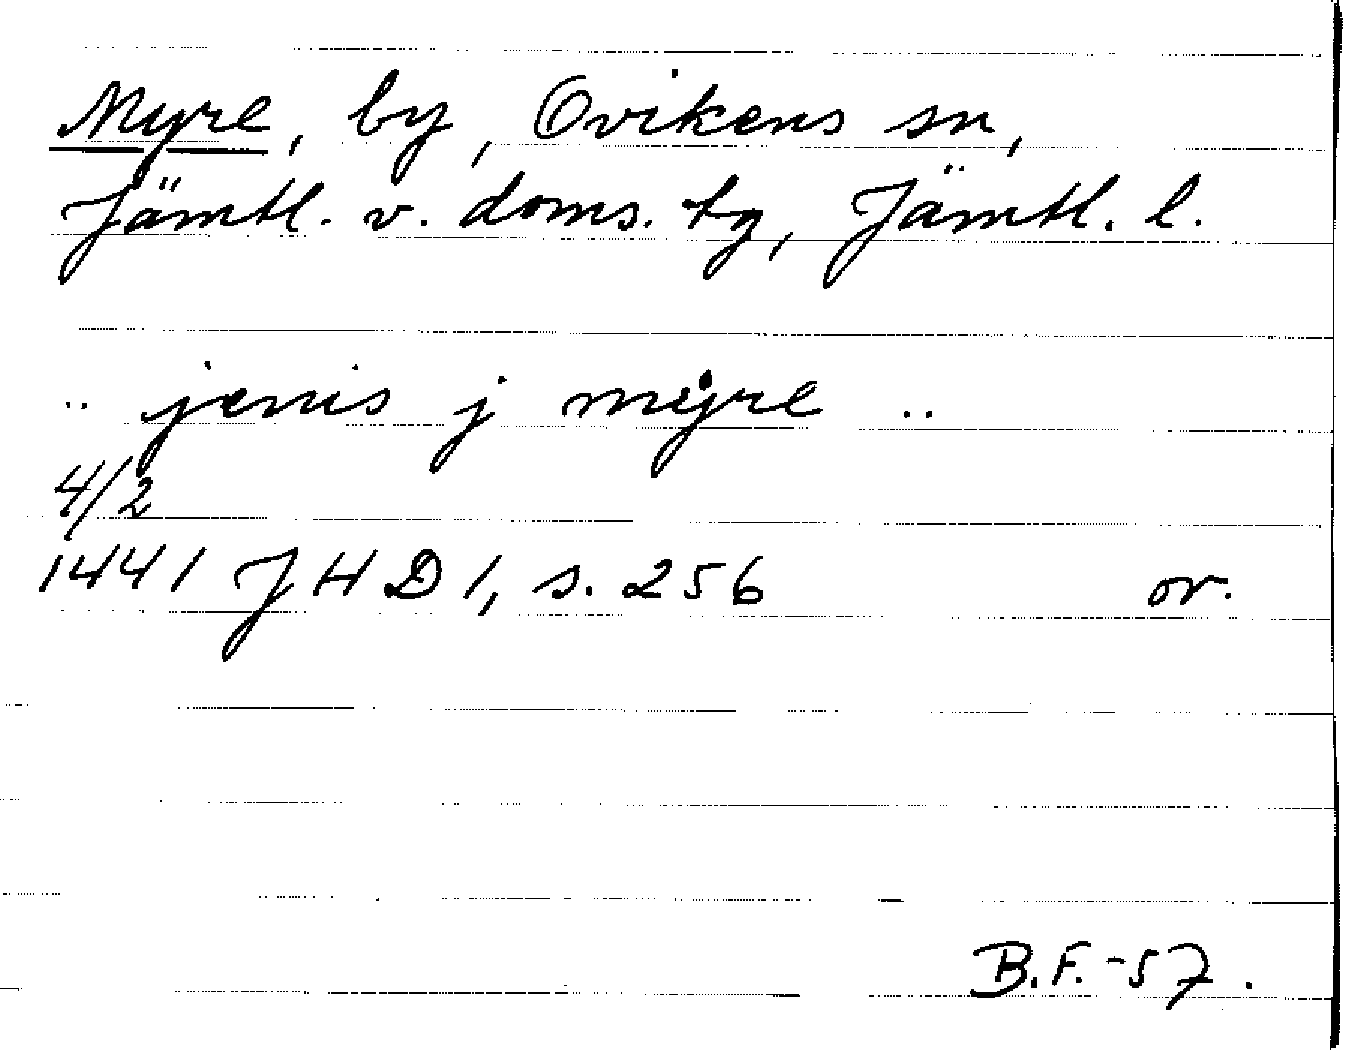 Myre, by, Ovikens sn,
Jämtl. v. doms. tg, Jämtl. l.
.. jenis j myre ..
4/2
1441 JHD 1, s. 256 or.
B.F.-57.